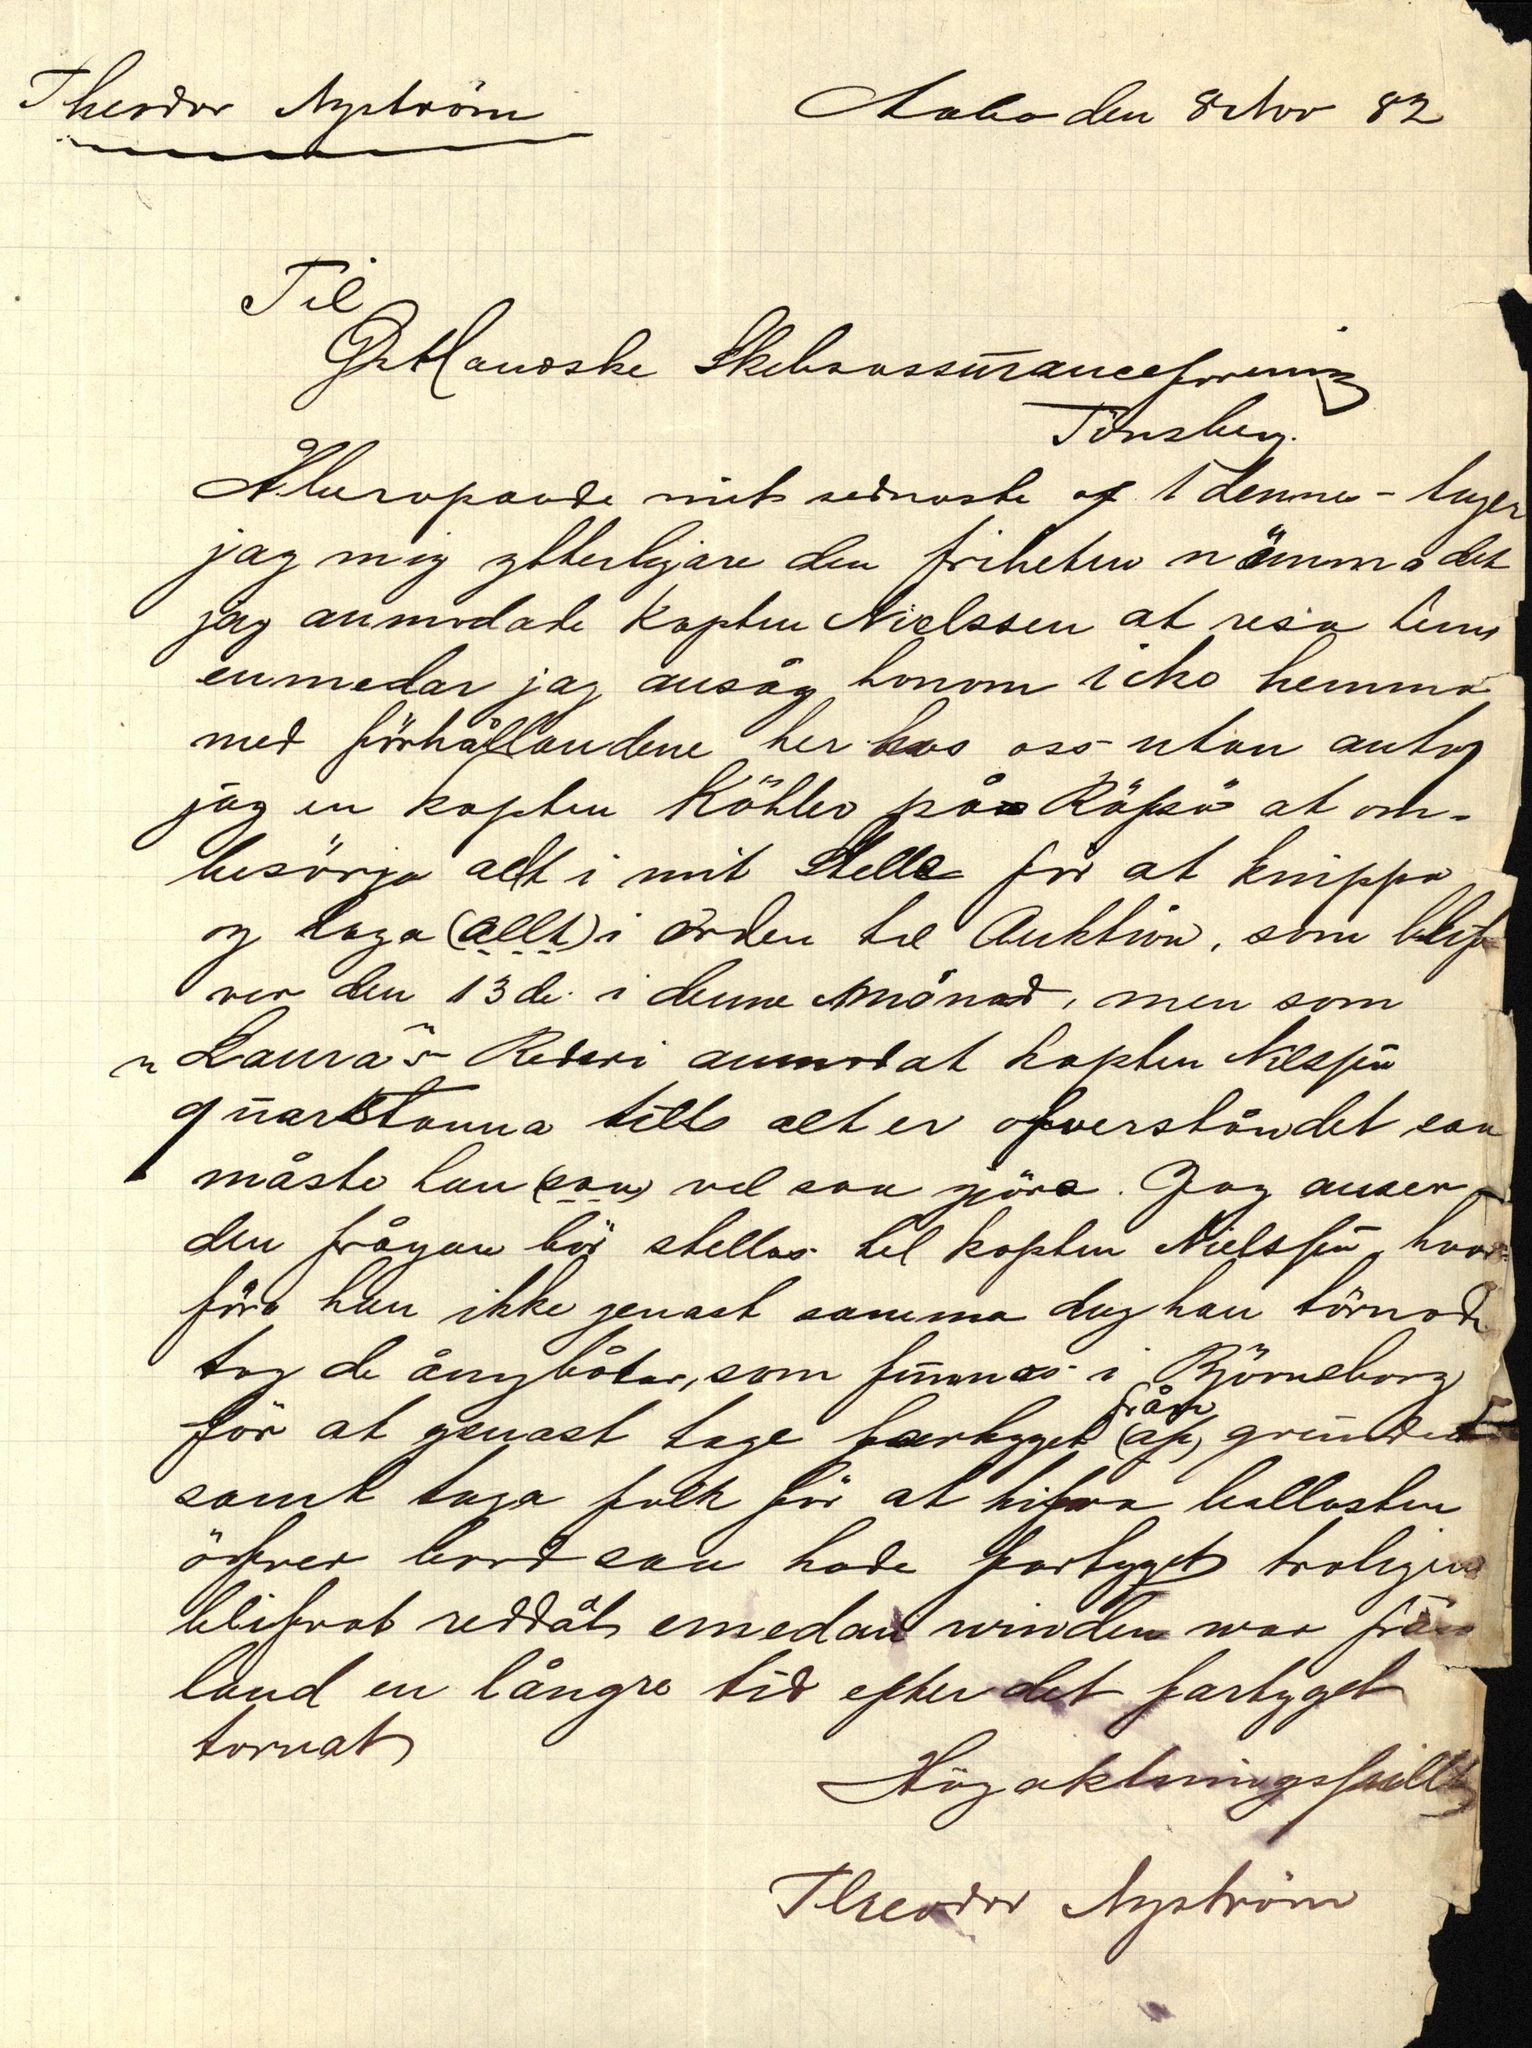 Theodor Nyström
Aabo den 8 Nov 82
Til
Østlandske Skibsassuranceforening
Tönsberg.
Åberopande mit sednaste af 1 dennes - tager
jag mig ytterligare den friheten nämna det
jag anmodade kapten Nielssen at resa hem
enmedan jag ansåg honom icke hemma
med förhållandene her hos oss utan antog
jag en kapten Köhler på Räfsö at om-
besörja alt i mit Stelle för at knippa
og taga (allt) i orden til Auktion, som blif
ver den 13de i denne Månad, men som
"Laura"s Rederi anmodat kapten Nilssen
quarstanna tills alt er ofverståndet saa
måste han (saa) vel saa gjöra. Jag anser
den frågan bör stellas til kapten Nielssen, hvar-
före han ikke genast samma dag han törnade
tog de ångbåtar, som funnes i Björneborg
från
för at genast tage fartyget (af) grundet
samt taga folk för at hifva ballasten
öfver bord saa hade fartyget troligen
blifvat reddåt emedan winden war från
land en långre tid efter det fartyget
tornat
Högaktningsfullt
Theodor Nyström